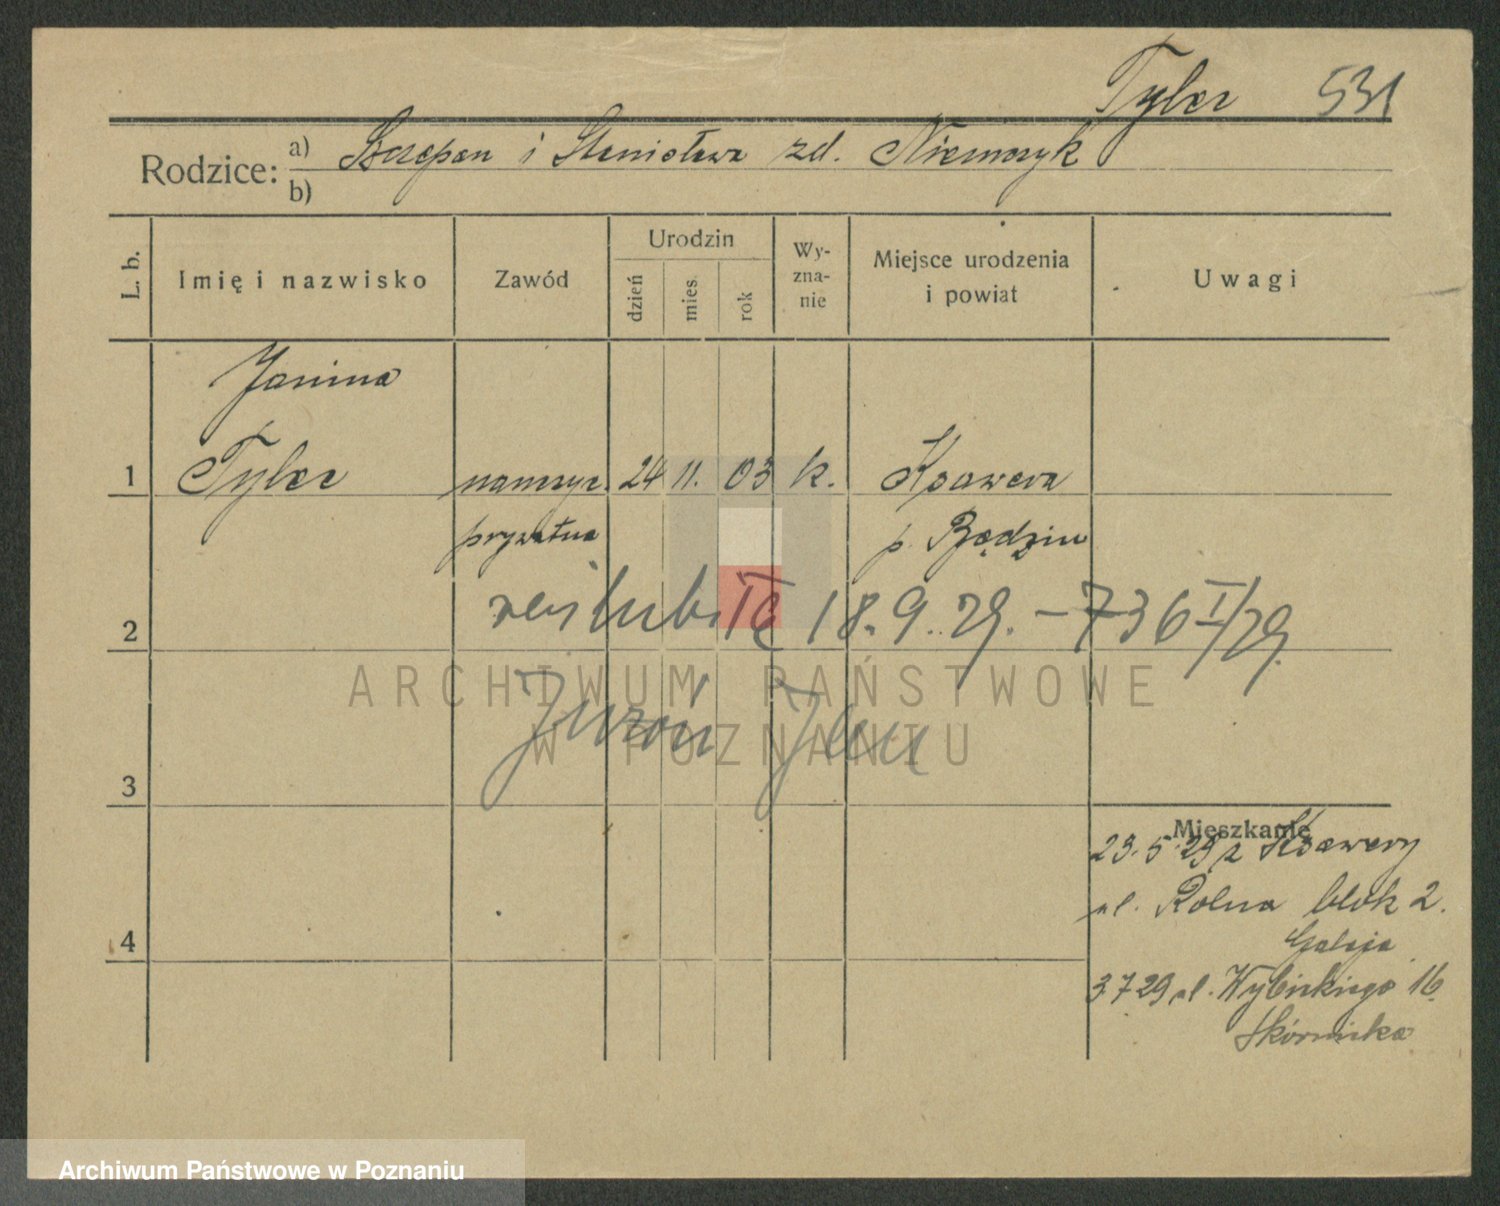 Tyler 531
Rodzice: a) Szczepan i Stanisława zd. Niemczyk
b)
L. b. Imię i nazwisko Zawód Urodzin dzień mies. rok Wy-zna-nie Miejsce urodzenia i powiat Uwagi
Janina
1 Tyler nauczyc. 24 11. 03 k. Ksawera
prywatna p. Będzin
2 18.9.29. - 736 I/29.
ARCHIWUM PAŃSTWOWE
W POZNANIU
Juzoń Jan
3
Mieszkanie
23.5.29 z Ksawery
ul. Rolna blok 2.
4 Galeja
3 7 29 ul. Wybickiego 16.
Skórnicka
Archiwum Państwowe w Poznaniu